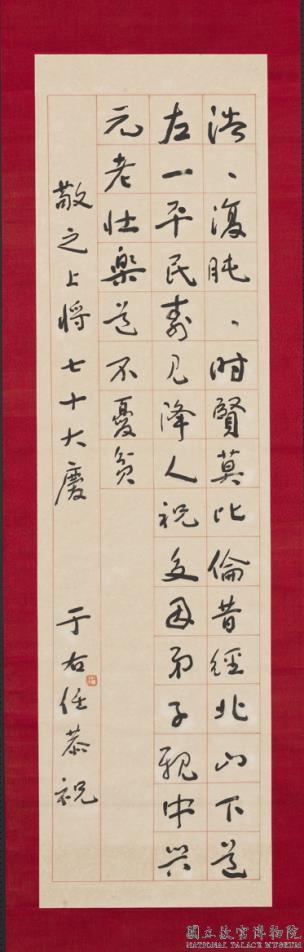 浩、復肫、時賢莫比倫昔經北山下道
左一平民壽見降人祝交因弟子親中興
元老壯楽道不憂貧
敬之上將七十大慶
于右任恭祝
國立故宮博物院
NATIONAL PALACE MUSEUM